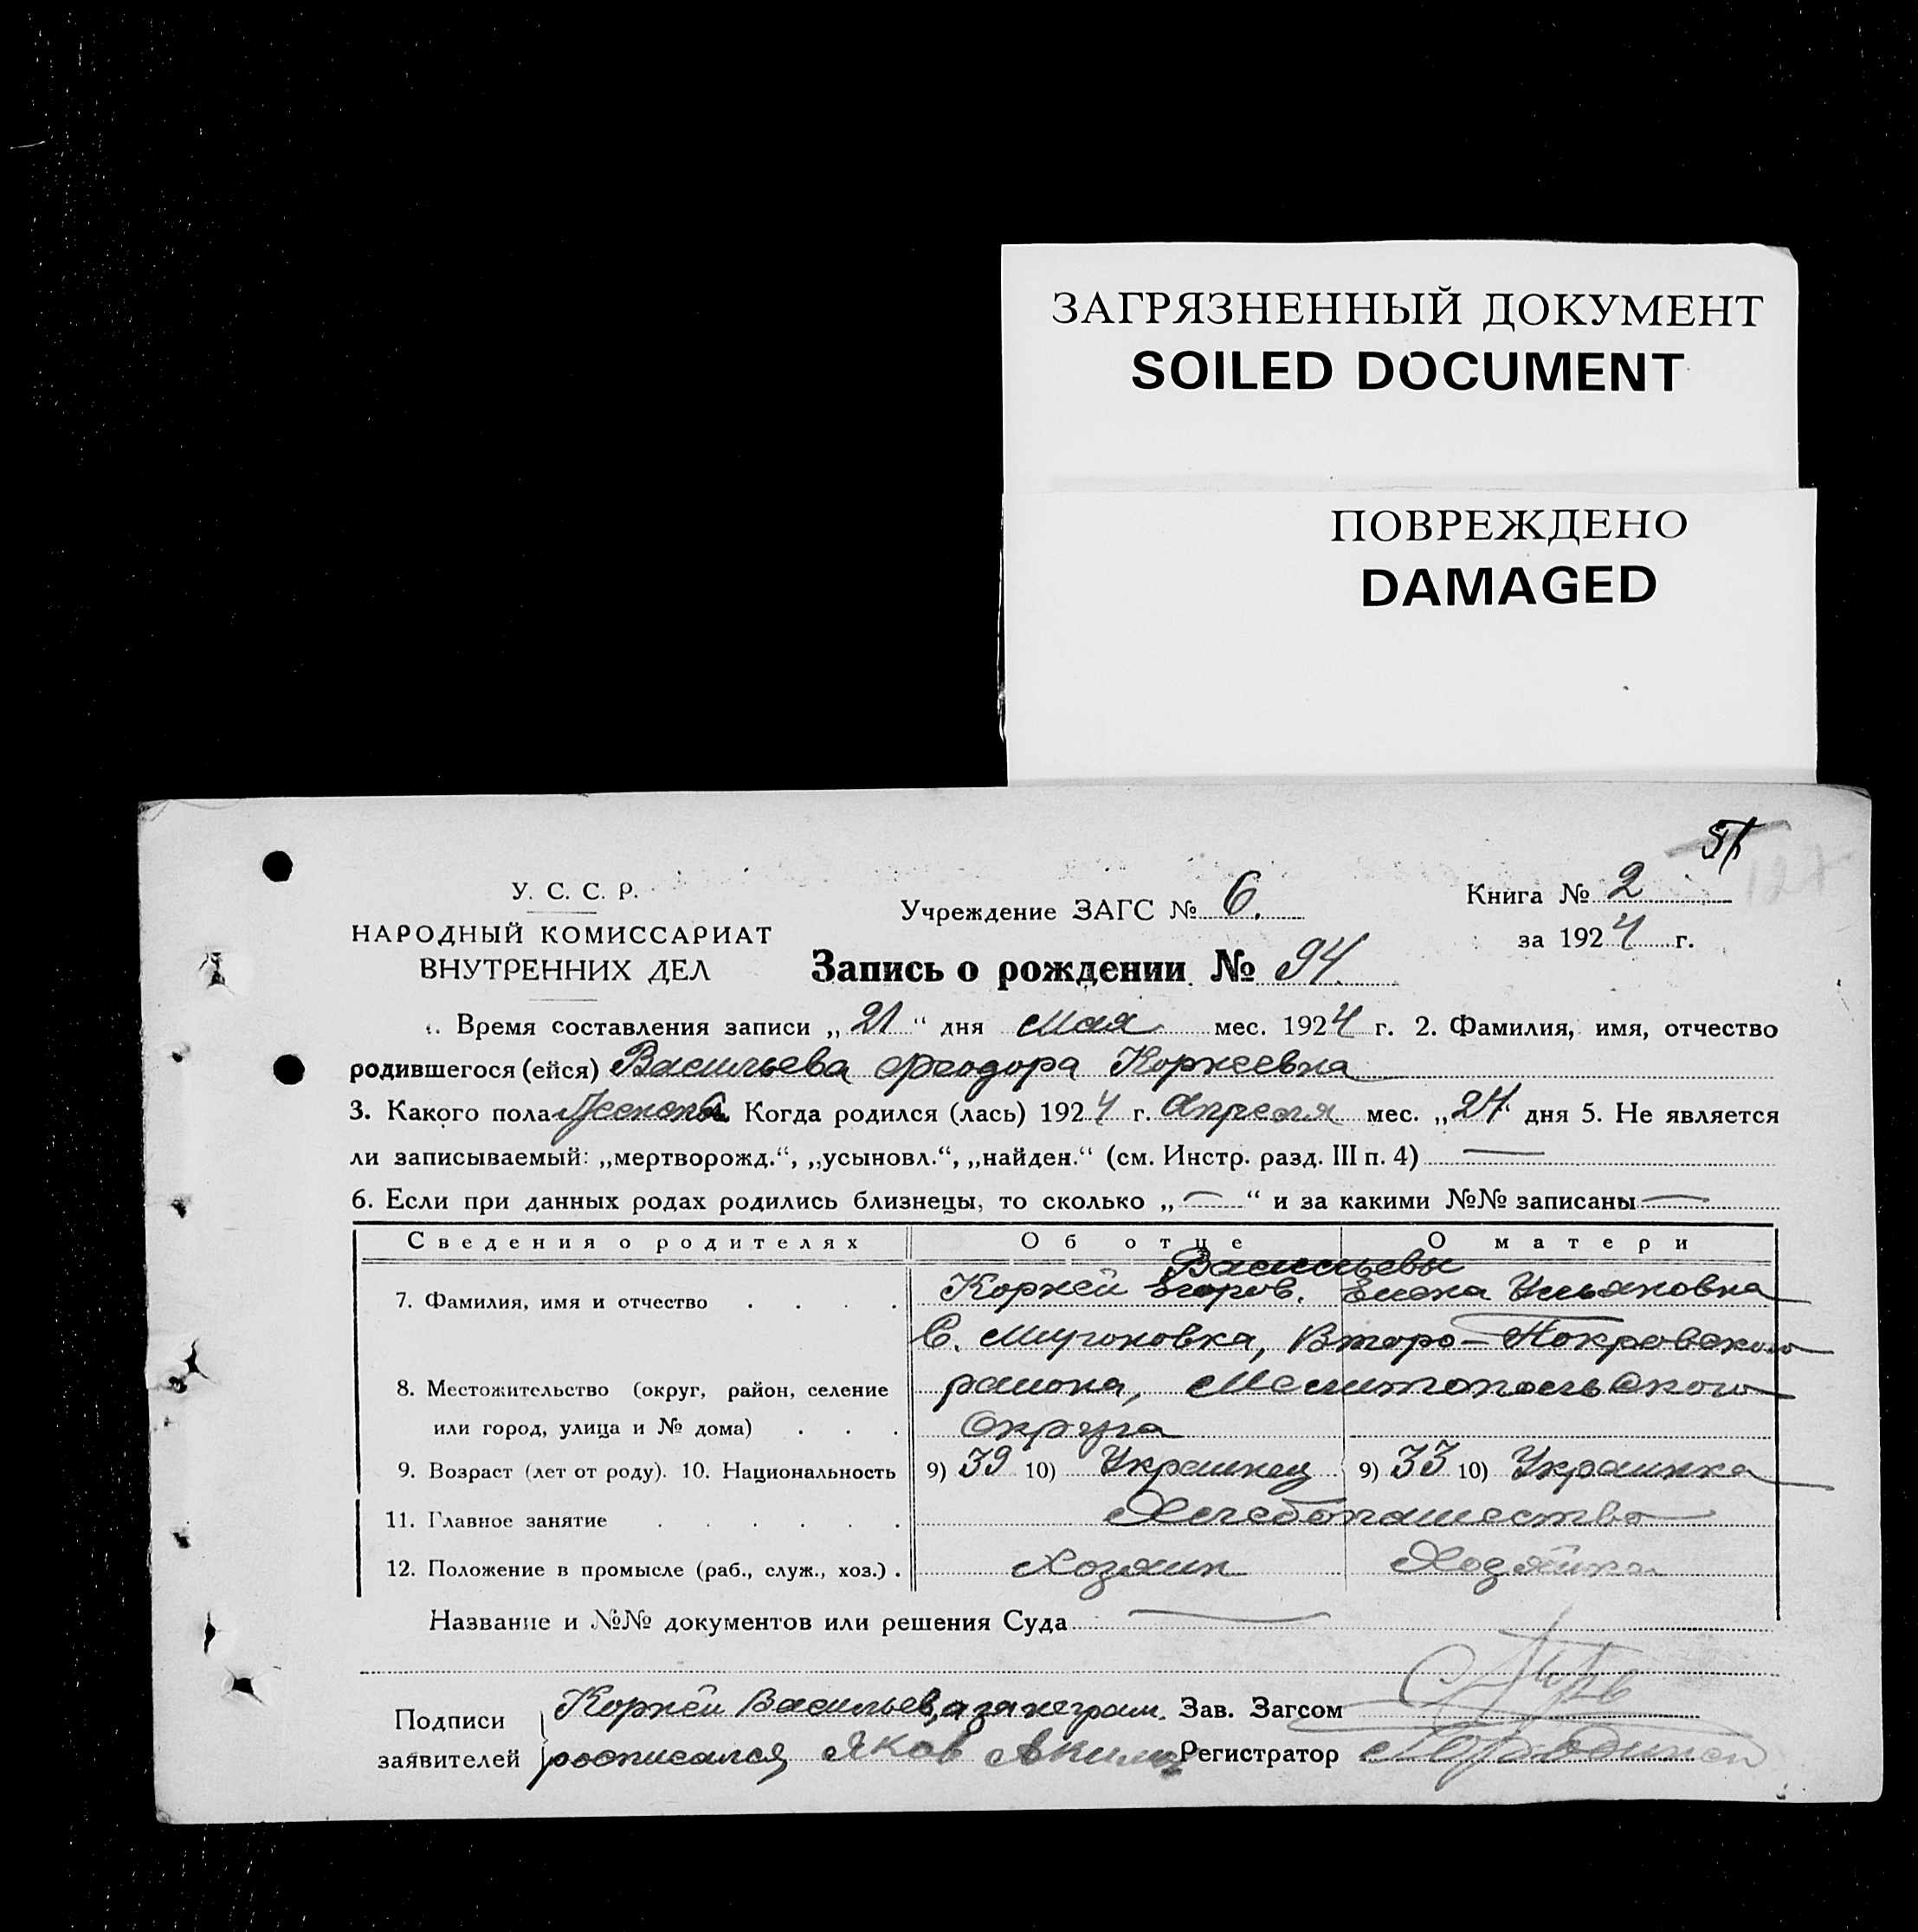 ЗАГРЯЗНЕННЫЙ ДОКУМЕНТ
SOILED DOCUMENT
ПОВРЕЖДЕНО
DAMAGED
У. С. С. Р.
НАРОДНЫЙ КОМИССАРИАТ
ВНУТРЕННИХ ДЕЛ
Учреждение ЗАГС № 6.
Запись о рождении № 94.
Книга № 2
за 1924 г.
. Время составления записи „21“ дня Мая мес. 1924 г. 2. Фамилия, имя, отчество
родившегося (ейся) Васильева Феодора Корнеевна
3. Какого пола Когда родился (лась) 1924 г. Апреля мес. „24“ дня 5. Не является
ли записываемый: „мертворожд.“, „усыновл.“, „найден.“ (см. Инстр. разд. III п. 4) —
6. Если при данных родах родились близнецы, то сколько „—“ и за какими №№ записаны —
Сведения о родителях Об отце О матери
Васильевы
7. Фамилия, имя и отчество . . . . Корней Егоров. Елена Ульяновна
С. Второ-Покровского
8. Местожительство (округ, район, селение района, Мелитопольского
или город, улица и № дома) . . . Округа
9. Возраст (лет от роду). 10. Национальность 9) 39 10) Украинец 9) 33 10) Украинка
11. Главное занятие . . . . . . Хлебопашество
12. Положение в промысле (раб., служ., хоз.) . Хозяин Хозяйка
Название и №№ документов или решения Суда —
Подписи Корней Васильев, а за неграм. Зав. Загсом
заявителей росписался Яков Регистратор